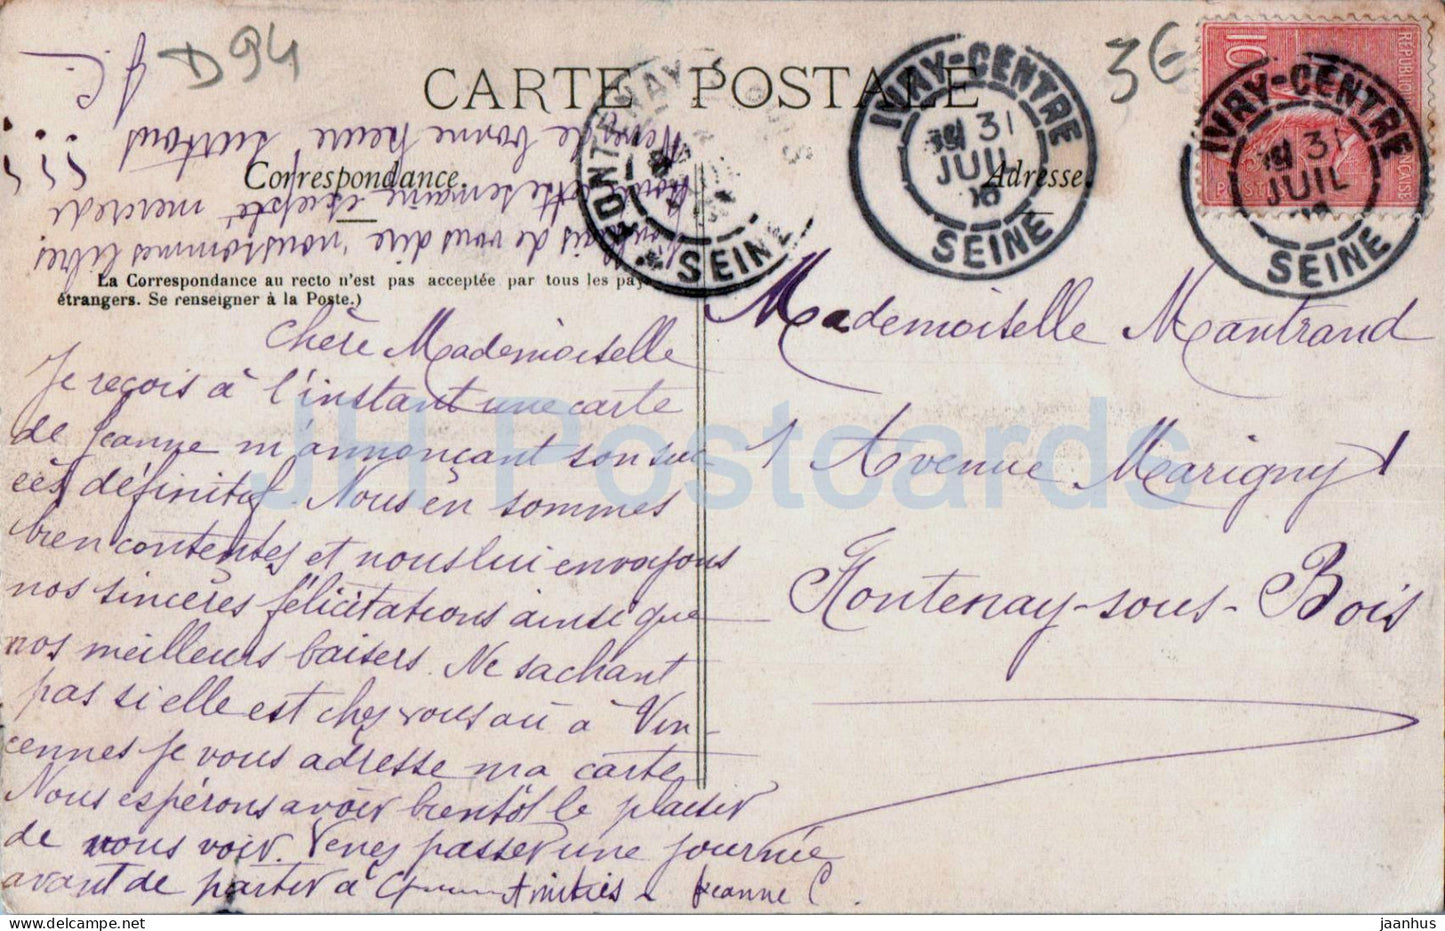 D94
3€
CARTE POSTALE
Correspondance.
Adresse.
La Correspondance au recto n'est pas acceptée par tous les pays
étrangers. Se renseigner à la Poste.)
IVRY-CENTRE
31
JUIL
SEINE
IVRY-CENTRE
31
JUIL
SEINE
SEINE
10
Chère Mademoiselle
Je reçois à l'instant une carte
de Jeanne m'annonçant son suc-
cès définitif. Nous en sommes
bien contentes et nous lui envoyons
nos sincères félicitations ainsi que
nos meilleurs baisers. Ne sachant
pas si elle est chez vous où à Vin-
cennes je vous adresse ma carte
Nous espérons avoir bientôt le plaisir
de vous voir. Venez passer une journée
avant de partir à Amitiés - Jeanne C.
de vous dire nous sommes libres
cette semaine excepté mercredi
de bonne heure surtout
!!!
J. C.
Mademoiselle Mantrand
1 Avenue Marigny 1
Fontenay-sous-Bois
JH Postcards
jaanhus / Delcampe.net